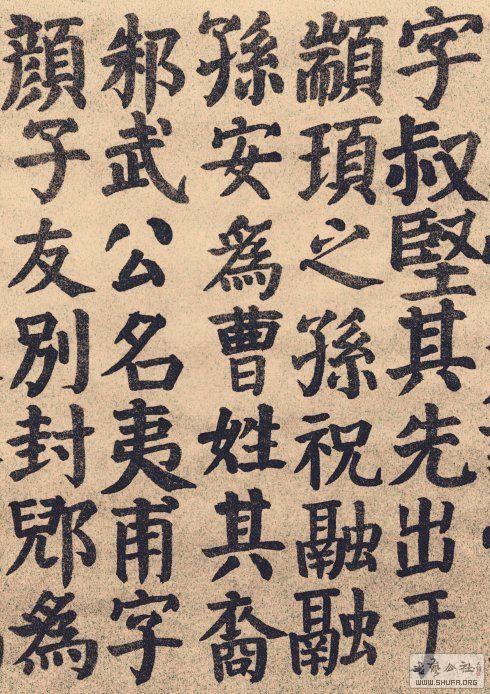 字叔堅其先出于
顓頊之孫祝融融
孫安爲曹姓其裔
邾武公名夷甫字
顏子友別封郳爲
WWW.SHUFA.ORG